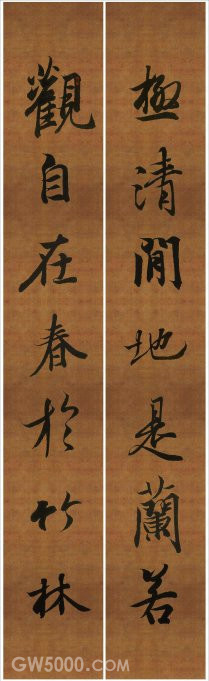 極清閒地是蘭若
觀自在春於竹林
GW5000.com